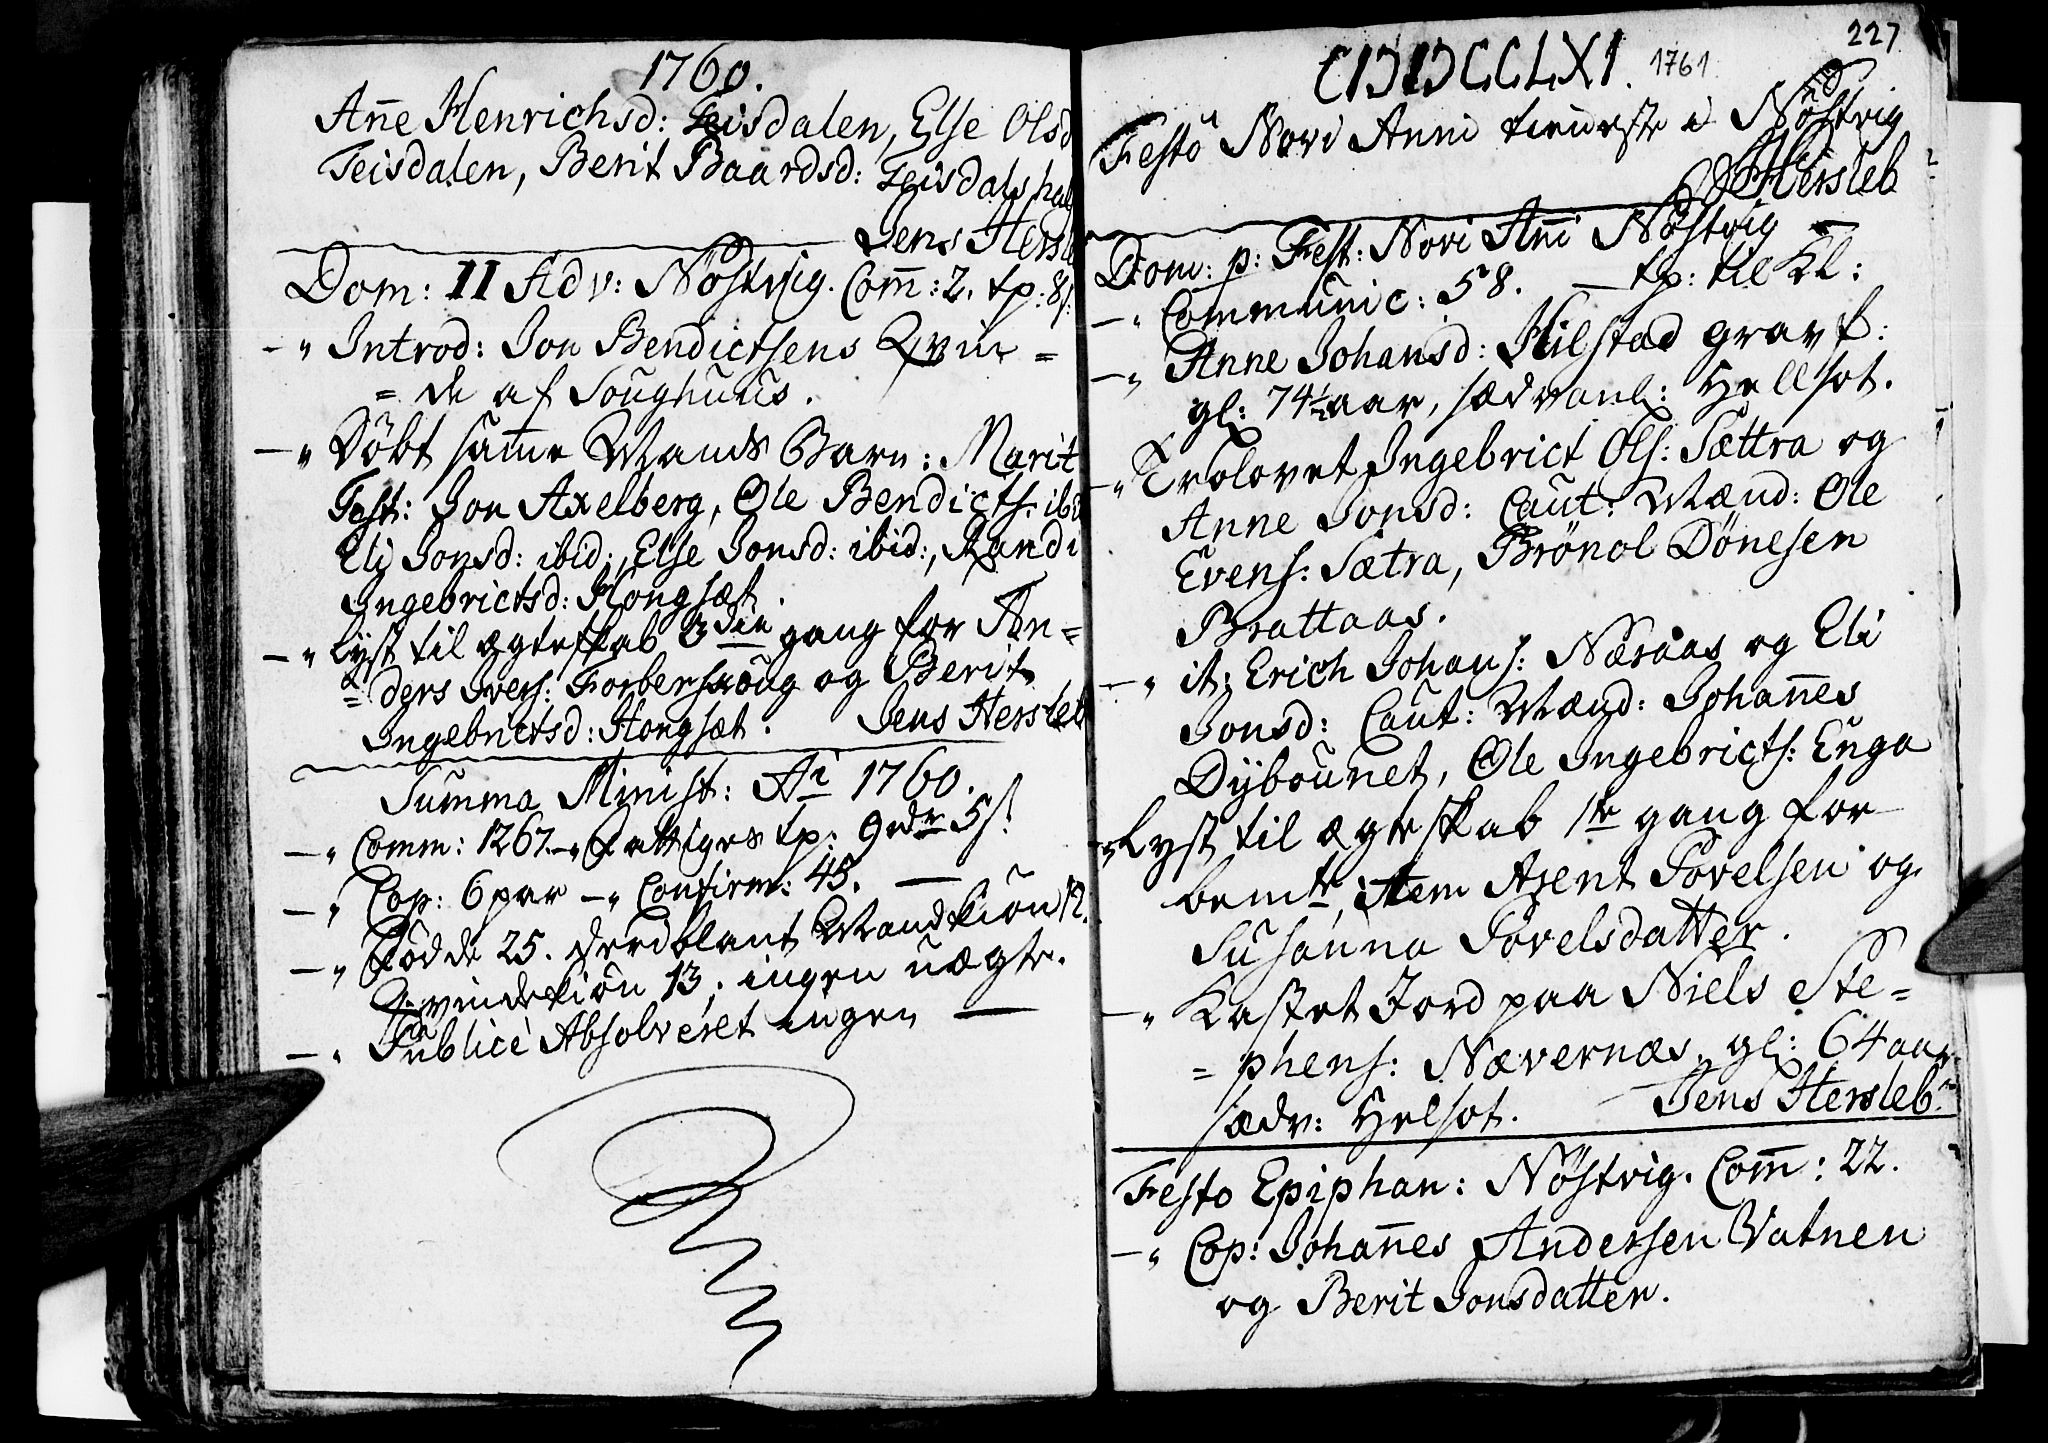 1760.
Añe Henrichsd: Feisdalen, Else Olsd
Feisdalen, Berit Baardsd: Feisdalshal
Jens Hersle
Dom: II Adv: Nöstvig. Com̃: 2. tp: 8ſ:
—„ Introd: Jon Bendictsens Qvin=
= de af Soughuus.
—„ Döbt sam̃e Mands Barn: Marit
Test: Jon Axelberg, Ole Bendicts: ibd
Eli Jonsd: ibid:, Else Jonsd: ibid:, Randi
Ingebrictsd: Hongsæt.
—„ Lyst til ægteskab 3die gang for An=
= ders Ivers: Forberskoug og Berit
Ingebrictsd: Hongsæt. Jens Hersleb
Summa Minist: Ai 1760.
—„ Comm: 1267. —„ Fattiges tp: 9rdr 5ſ.
—„ Cop: 6 par —„ Confirm: 45. —
—„ Födde 25. derdblant Mandkiön 12.
Qvindekiön 13; ingen uægte.
—„ Publicè Absolveret ingen —
227
CIƆIƆCCLXI. 1761
Festo Novi Anni tieneste i Nöstvig
J Hersleb
Dom: p: Fest: Novi Añi Nöstvig —
—„ Communic: 58. — tp: til Kl:
—„ Anne Johansd: Hilstad gravf:
gl: 74½ aar, sædvanl: Hellsot.
—„ Trolovet Ingebrict Ols: Sættra og
Anne Jonsd: Caut: Mænd: Ole
Evens: Sætra, Brönol Dönesen
Brattaas.
—„ it: Erich Johans: Næraas og Eli
Jonsd: Caut: Mænd: Johañes
Dybounet, Ole Ingebricts: Enga
—„ Lyst til ægteskab 1te gang for
bemte, item Arent Povelsen og
Susanna Povelsdatter.
—„ Kastet Jord paa Niels Ste=
= phens: Nævernæs, gl: 64 aar
sædv: Helsot. Jens Hersleb
Festo Epiphan: Nöstvig. Com̃: 22.
—„ Cop: Johañes Andersen Vatnen
og Berit Jonsdatter.